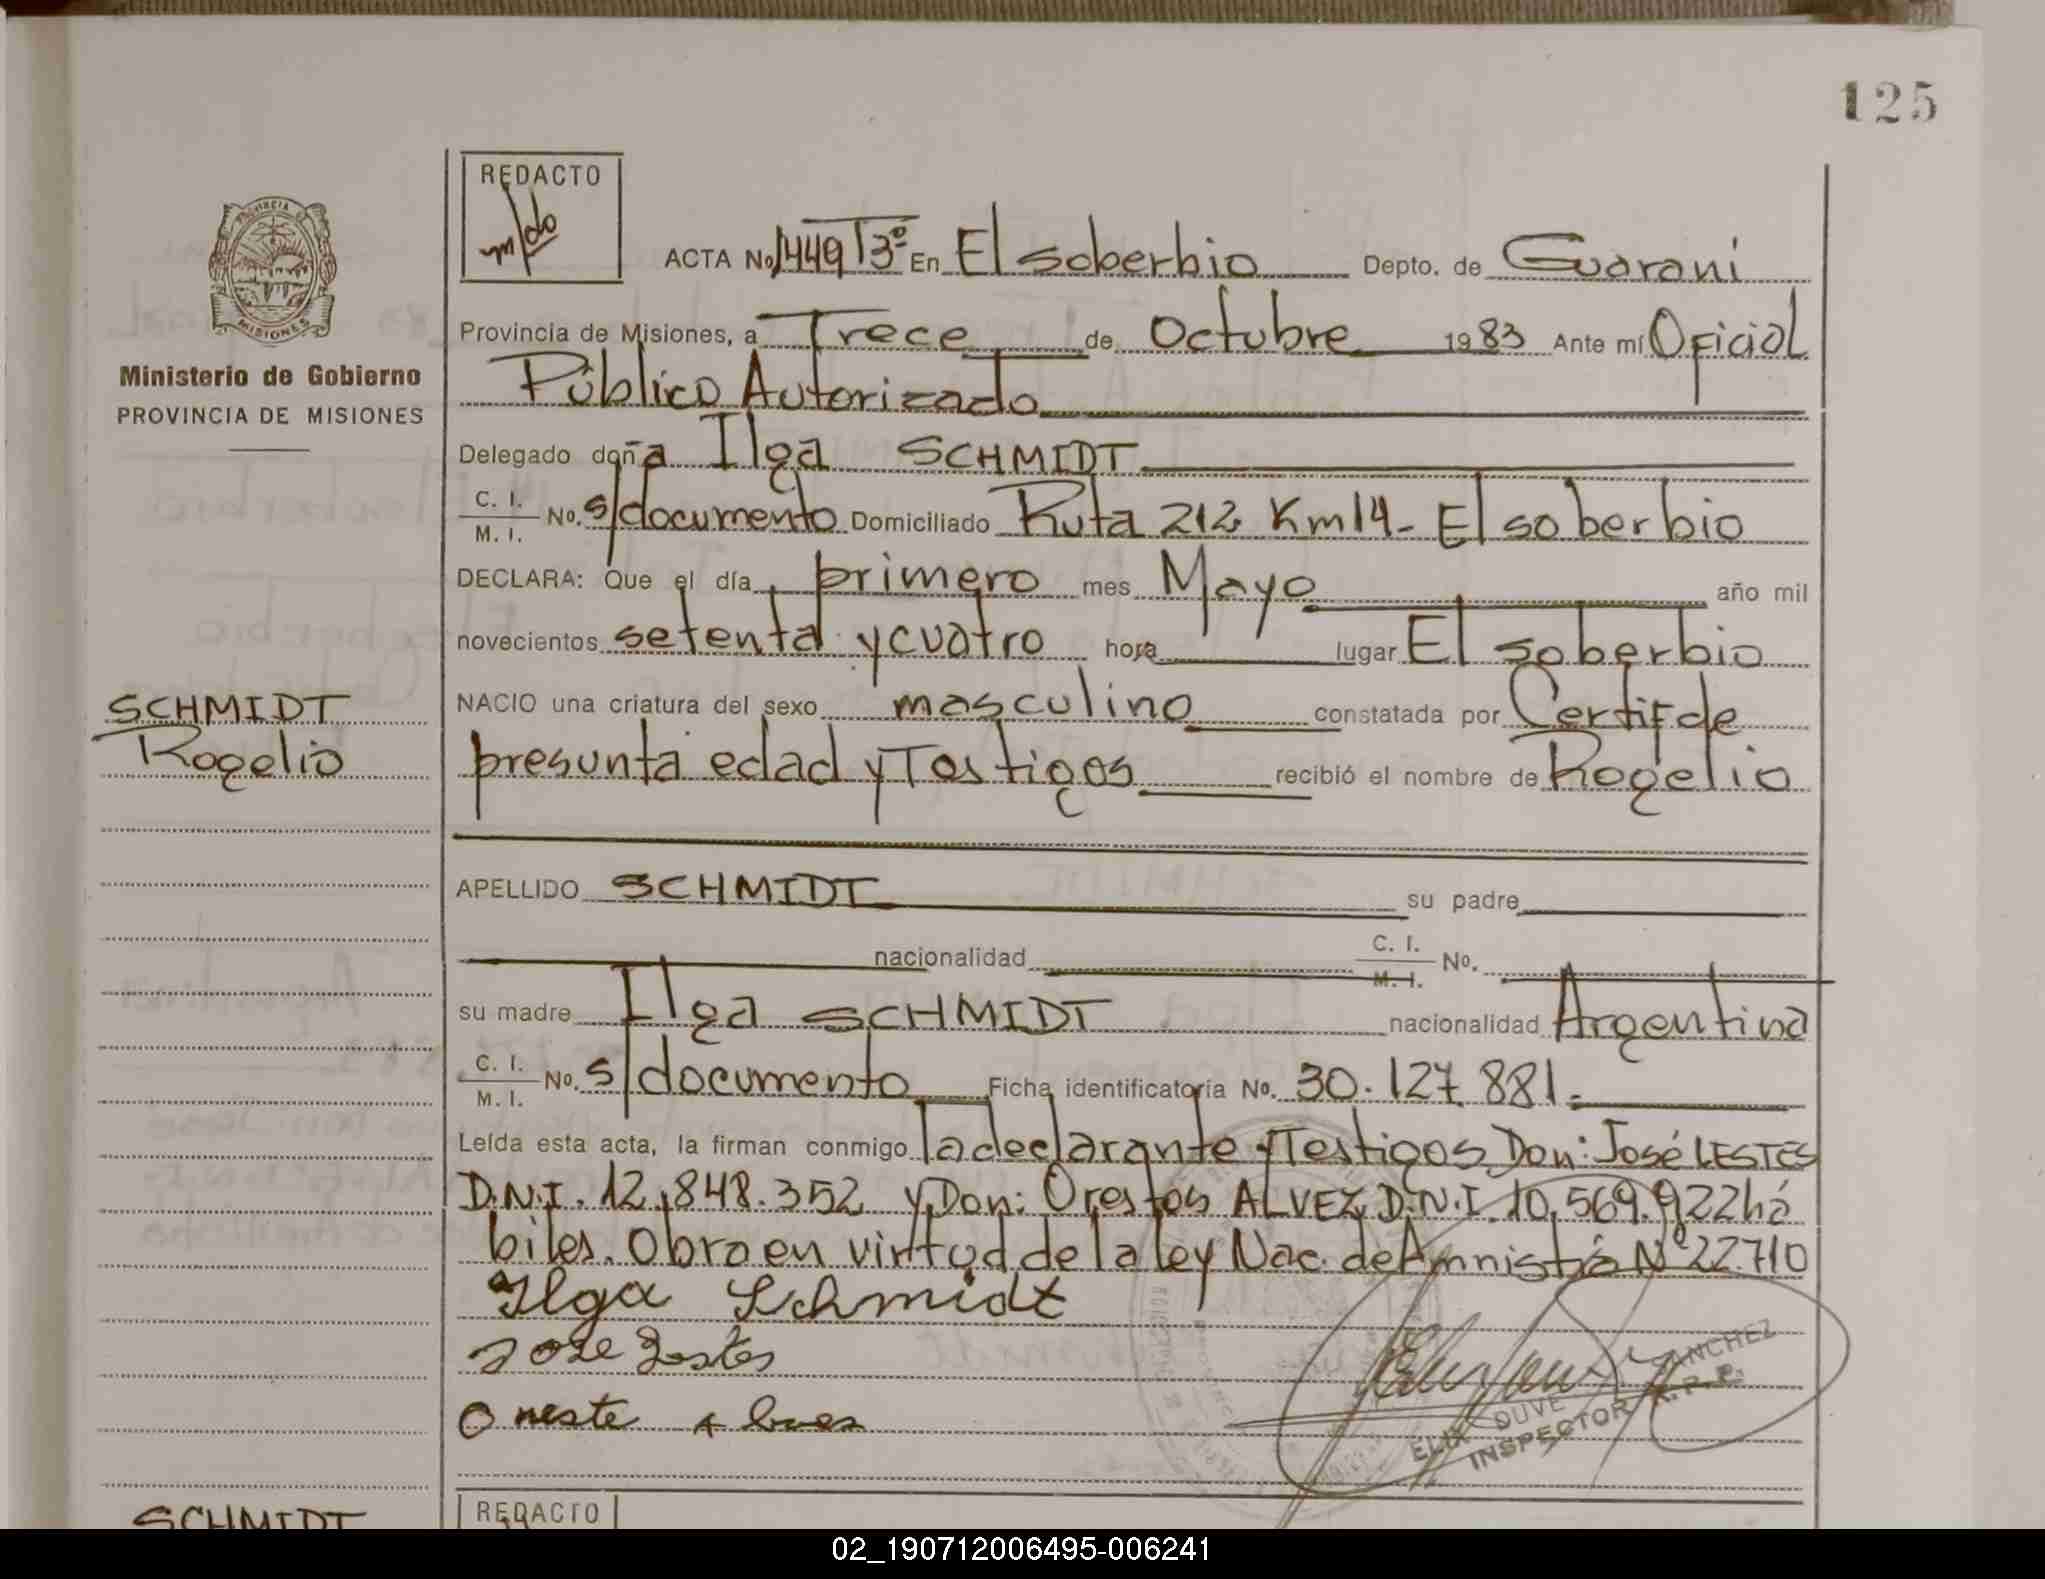 125
REDACTO
ACTA No. 1449 T3º En El soberbio Depto. de Guarani
PROVINCIA DE
MISIONES
Provincia de Misiones, a Trece de Octubre 1983 Ante mí Oficial
Ministerio de Gobierno
PROVINCIA DE MISIONES
Público Autorizado
Delegado doña Ilga SCHMIDT
C. I.
M. I. No. s/documento Domiciliado Ruta 212 Km 14 - El soberbio
DECLARA: Que el día primero mes Mayo año mil
novecientos setenta y cuatro hora lugar El soberbio
SCHMIDT
Rogelio
NACIO una criatura del sexo masculino constatada por Certif de
presunta edad y Testigos recibió el nombre de Rogelio
APELLIDO SCHMIDT su padre
nacionalidad C. I.
M. I. No.
su madre Ilga SCHMIDT nacionalidad Argentina
C. I.
M. I. No. s/documento Ficha identificatoria No. 30.127.881.
Leída esta acta, la firman conmigo la declarante y Testigos Don: José LESTES
D.N.I. 12.848.352 y Don: Orestes ALVEZ D.N.I. 10.569.922 há
biles. Obro en virtud de la ley Nac. de Amnistía Nº 22.710
Ilga Schmidt
Jose Lestes
Oreste
ELIX DUVE SANCHEZ
INSPECTOR R.P.P.
SCHMIDT
REDACTO
02_190712006495-006241